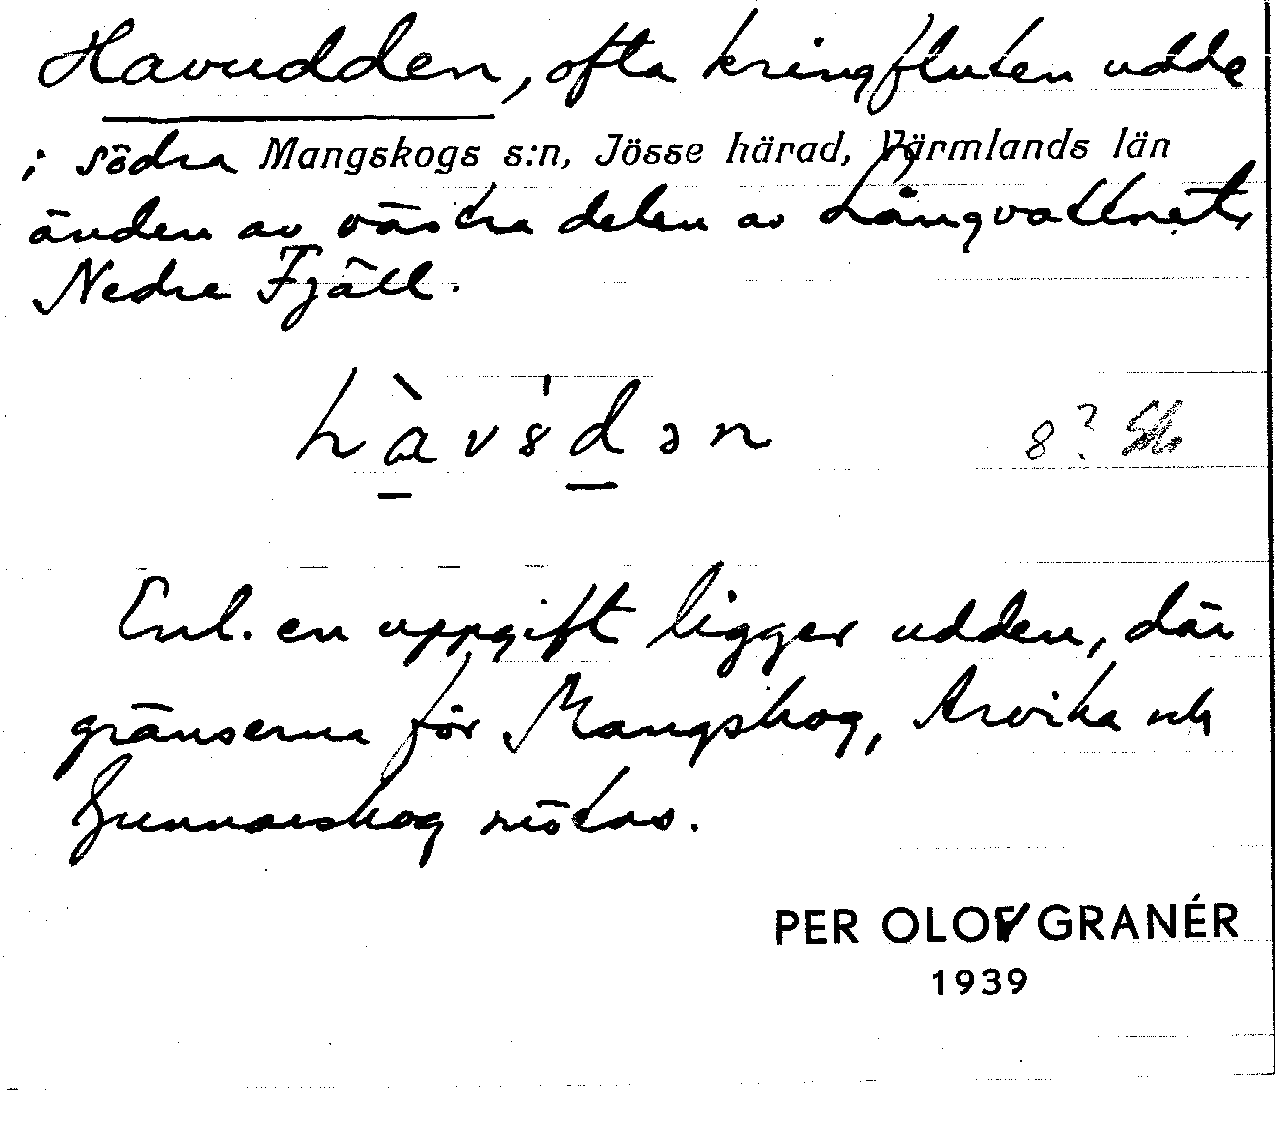 Havudden, ofta kringfluten udde
i södra Mangskogs s:n, Jösse härad, Värmlands län
änden av västra delen av Långvattnet,
Nedre Fjäll.
hàvs̍dən 8?
Enl. en uppgift ligger udden, där
gränserna för Mangskog, Arvika och
Gunnarskog mötas.
PER OLOF GRANÉR
1939